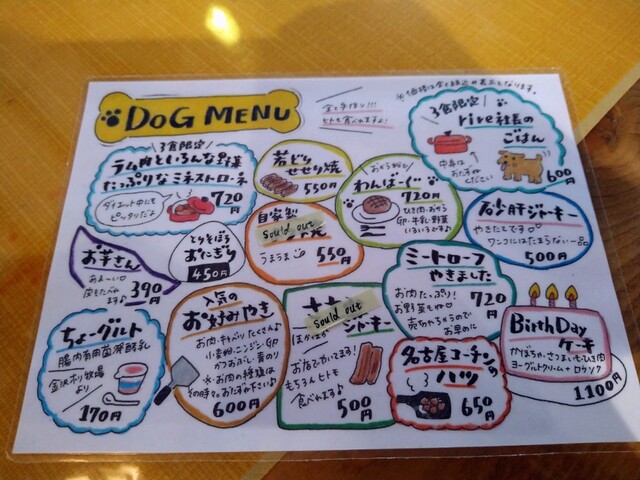 DOG MENU
全て手作り!!!
ヒトも食べれますよ!
※価格は全て税込の表示となります。
3食限定
ラム肉といろんな野菜
たっぷりなミネストローネ
ダイエット中にも
ピッタリだよ
720円
若どり
せせり焼
550円
おから入り
わんばーぐ
720円
ひき肉・おから
卵・牛乳・野菜
いろいろですよ
3食限定
rire社長の
ごはん
中身は
おたずね
ください
600円
お芋さん
あまーい
皮もたべれ
ます♪
390円
とりそぼろ
おにぎり
450円
自家製
sould out
うまうま
550円
砂肝ジャーキー
やきたてです♡
ワンコにはたまらない一品
500円
ミートローフ
やきました
お肉たっぷり!
お野菜もね♡
売切ちゃうので
お早めに
720円
ちょーグルト
腸内有用菌発酵乳
金沢ホリ牧場
より
170円
人気の
お好みやき
お肉・キャベツたくさん♪
小麦粉・ニンジン・卵
かつおぶし・青のり
※お肉の種類は
その時々でおたずね下さい♪
600円
sould out
ジャーキー
お店で作ってます!
もちろんヒトも
食べれますよ♪
500円
名古屋コーチンの
ハツ
650円
BirthDay
ケーキ
かぼちゃ、さつまいも、ひき肉
ヨーグルトクリーム+ロウソク
1100円